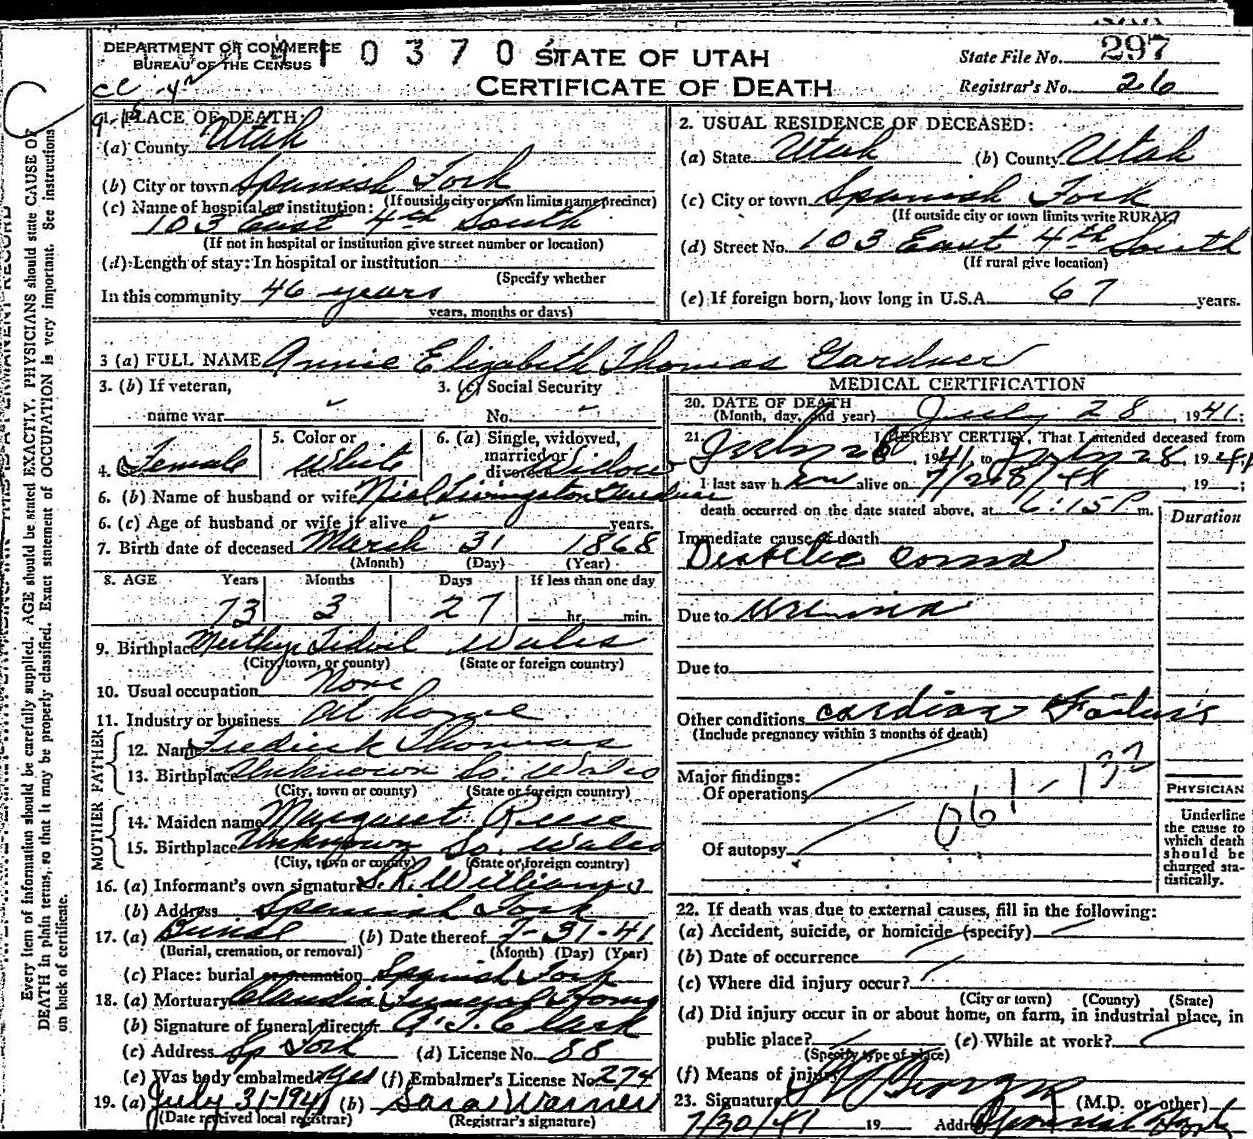 DEPARTMENT OF COMMERCE
BUREAU OF THE CENSUS
4 1 0 3 7 0
STATE OF UTAH
CERTIFICATE OF DEATH
State File No. 297
Registrar's No. 26
1. PLACE OF DEATH:
(a) County Utah
(b) City or town Spanish Fork
(If outside city or town limits name precinct)
(c) Name of hospital or institution:
103 East 4th South
(If not in hospital or institution give street number or location)
(d) Length of stay: In hospital or institution
(Specify whether
In this community 46 years
years, months or days)
2. USUAL RESIDENCE OF DECEASED:
(a) State Utah (b) County Utah
(c) City or town Spanish Fork
(If outside city or town limits write RURAL)
(d) Street No. 103 East 4th South
(If rural give location)
(e) If foreign born, how long in U.S.A. 67 years.
3 (a) FULL NAME Annie Elizabeth Thomas Gardner
3. (b) If veteran,
name war
3. (c) Social Security
No.
4. Female
5. Color or
race White
6. (a) Single, widowed,
married or
divorced Widow
6. (b) Name of husband or wife Niel Livingston Gardner
6. (c) Age of husband or wife if alive years.
7. Birth date of deceased March 31 1868
(Month) (Day) (Year)
8. AGE Years Months Days If less than one day
73 3 27 hr. min.
9. Birthplace Merthyr Tidvil Wales
(City, town, or county) (State or foreign country)
10. Usual occupation None
11. Industry or business at home
FATHER
12. Name Fredrick Thomas
13. Birthplace Unknown So. Wales
(City, town or county) (State or foreign country)
MOTHER
14. Maiden name Margaret Reese
15. Birthplace Unknown So. Wales
(City, town or county) (State or foreign country)
16. (a) Informant's own signature S.R. Williams
(b) Address Spanish Fork
17. (a) Burial (b) Date thereof 7-31-41
(Burial, cremation, or removal) (Month) (Day) (Year)
(c) Place: burial or cremation Spanish Fork
18. (a) Mortuary Claudin Funeral Home
(b) Signature of funeral director A.J. Clark
(c) Address Sp Fork (d) License No. 88
(e) Was body embalmed? yes (f) Embalmer's License No. 274
19. (a) July 31-1941 (b) Sara Warner
(Date received local registrar) (Registrar's signature)
MEDICAL CERTIFICATION
20. DATE OF DEATH
(Month, day, and year) July 28, 1941;
21. I HEREBY CERTIFY, That I attended deceased from
1941, to July 28, 1941
I last saw her alive on 7/28/41, 19 ;
death occurred on the date stated above, at 6:15P m.
Duration
Immediate cause of death
Diabetic coma
Due to uremia
Due to
Other conditions cardiac Failure
(Include pregnancy within 3 months of death)
Major findings:
Of operations
061-
Of autopsy
PHYSICIAN
Underline
the cause to
which death
should be
charged sta-
tistically.
22. If death was due to external causes, fill in the following:
(a) Accident, suicide, or homicide (specify)
(b) Date of occurrence
(c) Where did injury occur?
(City or town) (County) (State)
(d) Did injury occur in or about home, on farm, in industrial place, in
public place? (e) While at work?
(Specify type of place)
(f) Means of injury
23. Signature (M.D. or other)
7/30/41 19 Address Spanish Fork
Every item of information should be carefully supplied. AGE should be stated EXACTLY. PHYSICIANS should state CAUSE OF
DEATH in plain terms, so that it may be properly classified. Exact statement of OCCUPATION is very important. See instructions
on back of certificate.